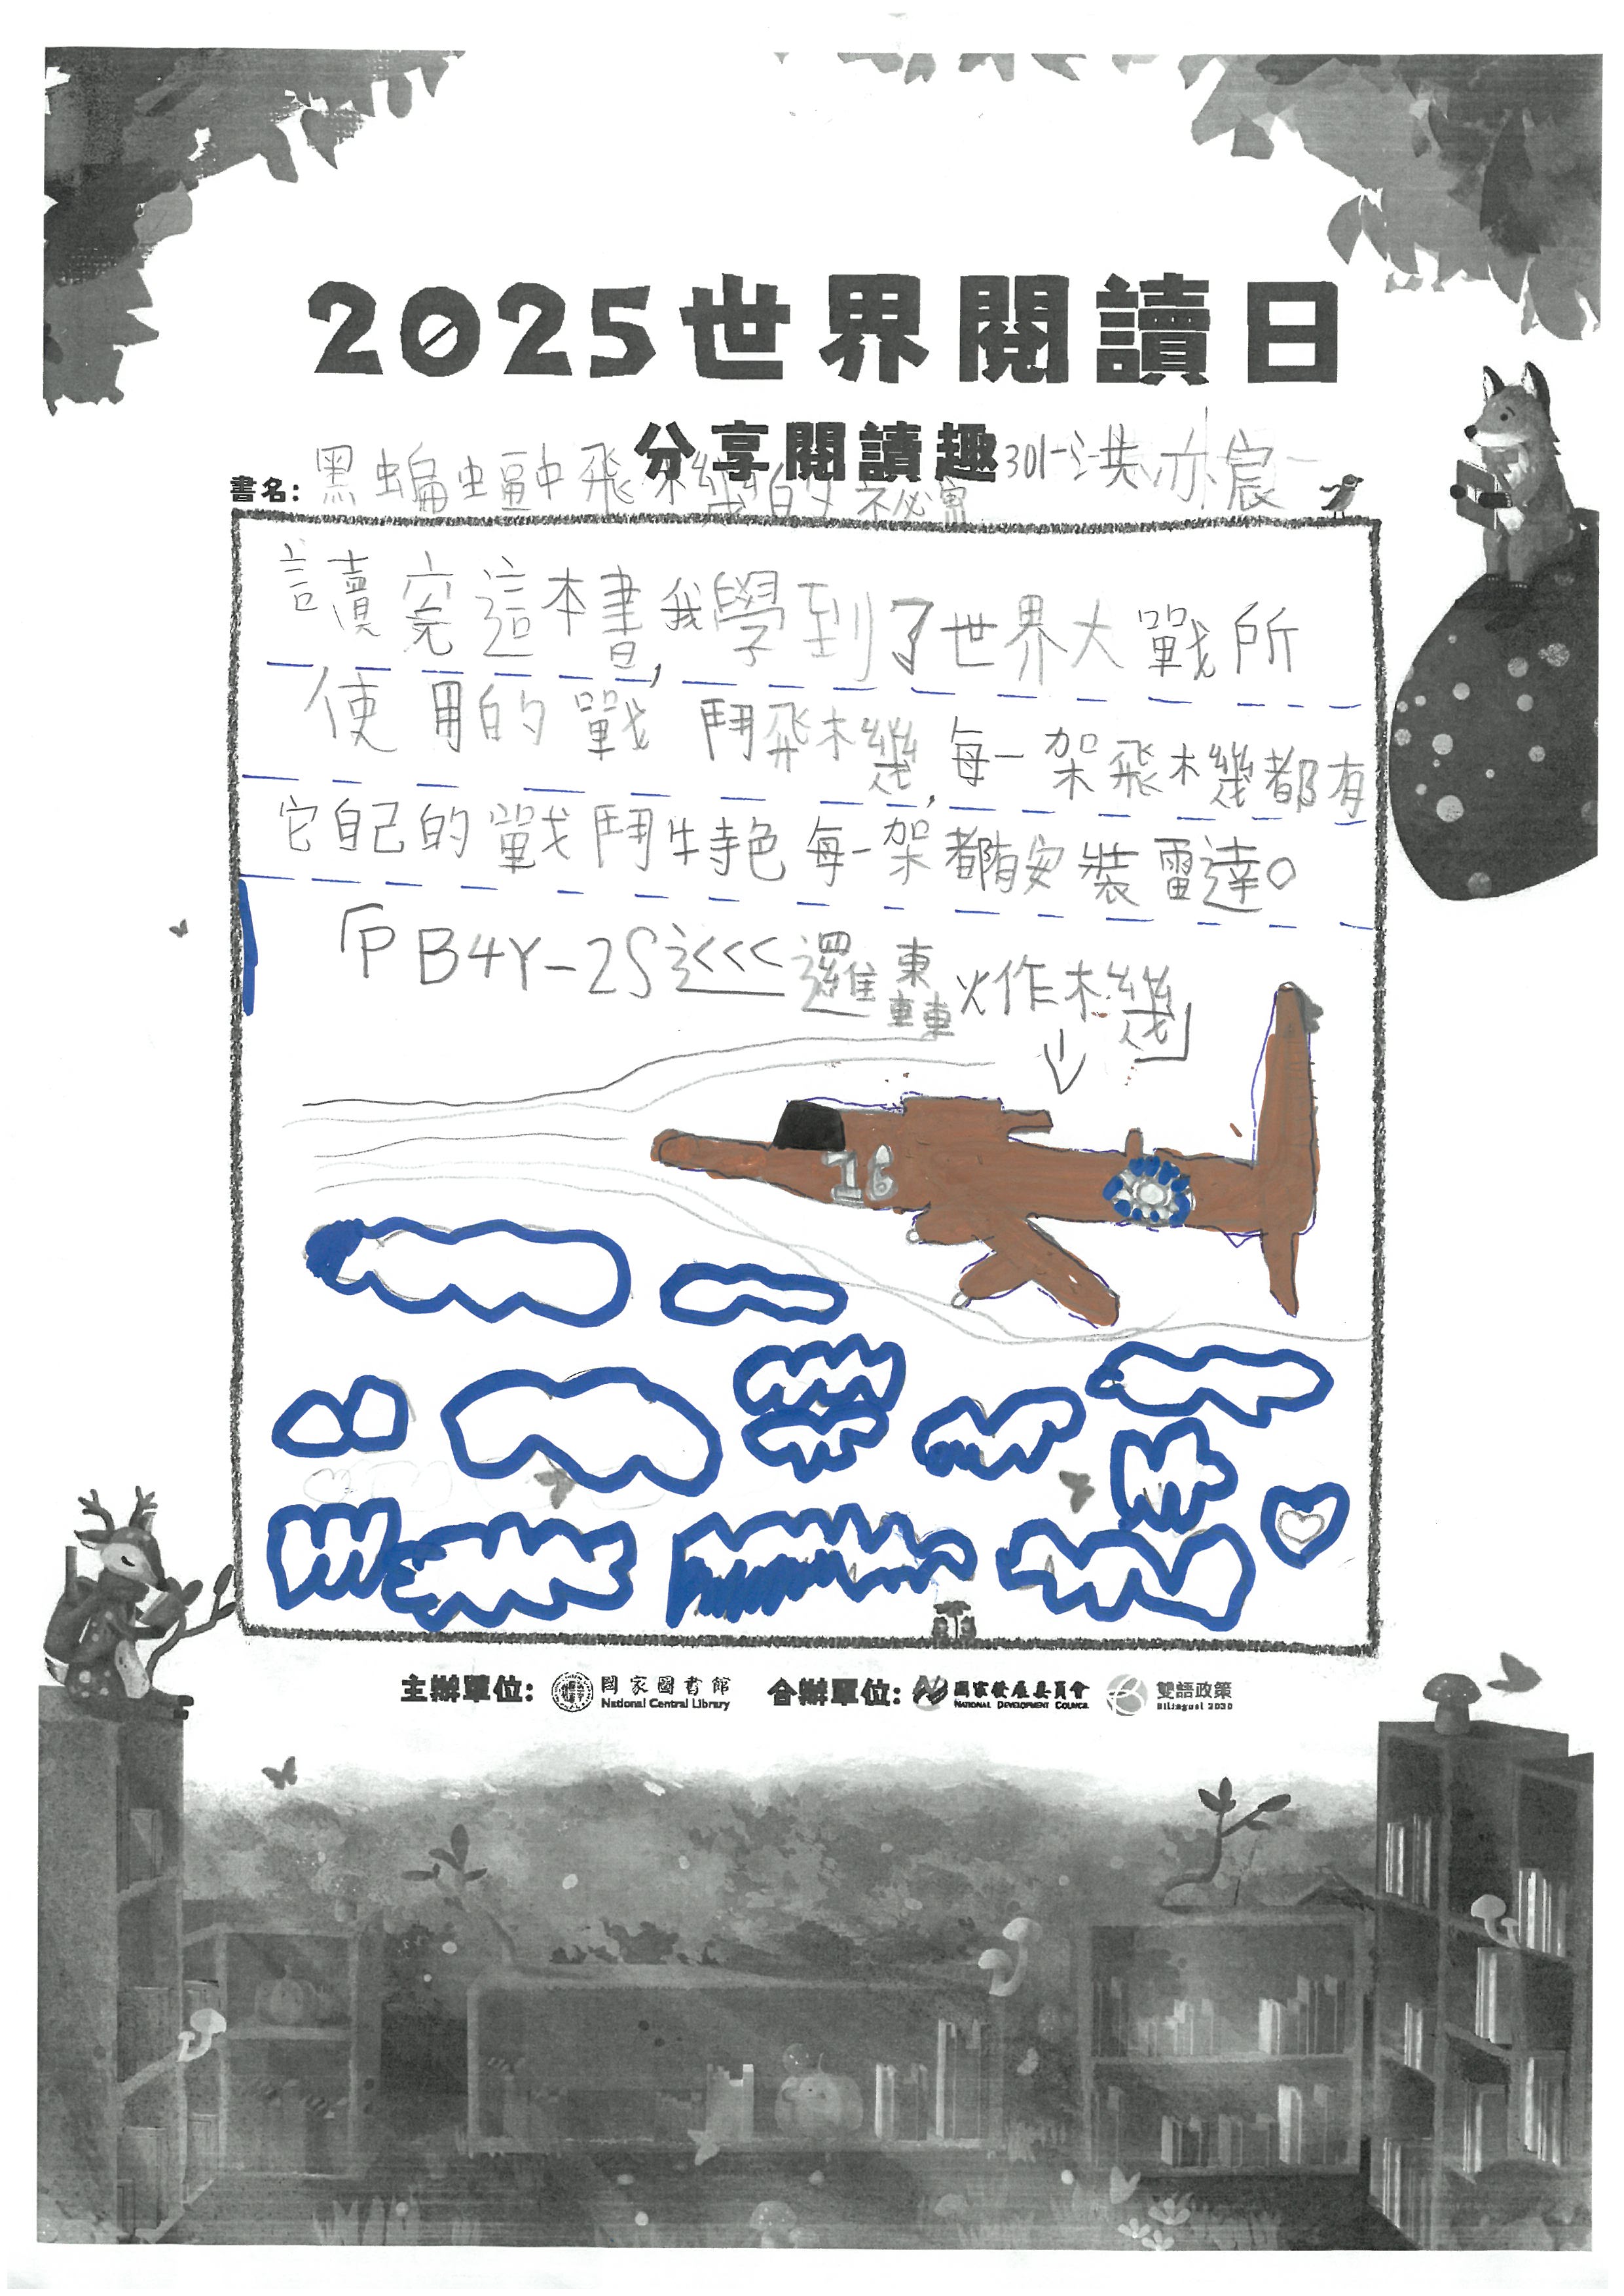 2025世界閱讀日
分享閱讀趣
301 洪亦宸
書名：黑蝙蝠中飛機的祕密
讀完這本書,我學到了世界大戰所
使用的戰鬥飛機,每一架飛機都有
它自己的戰鬥特色每一架都有安裝雷達。
「PB4Y-2S巡邏轟炸機」
16
主辦單位: 國家圖書館 National Central Library 合辦單位: 國家發展委員會 NATIONAL DEVELOPMENT COUNCIL 雙語政策 Bilingual 2030